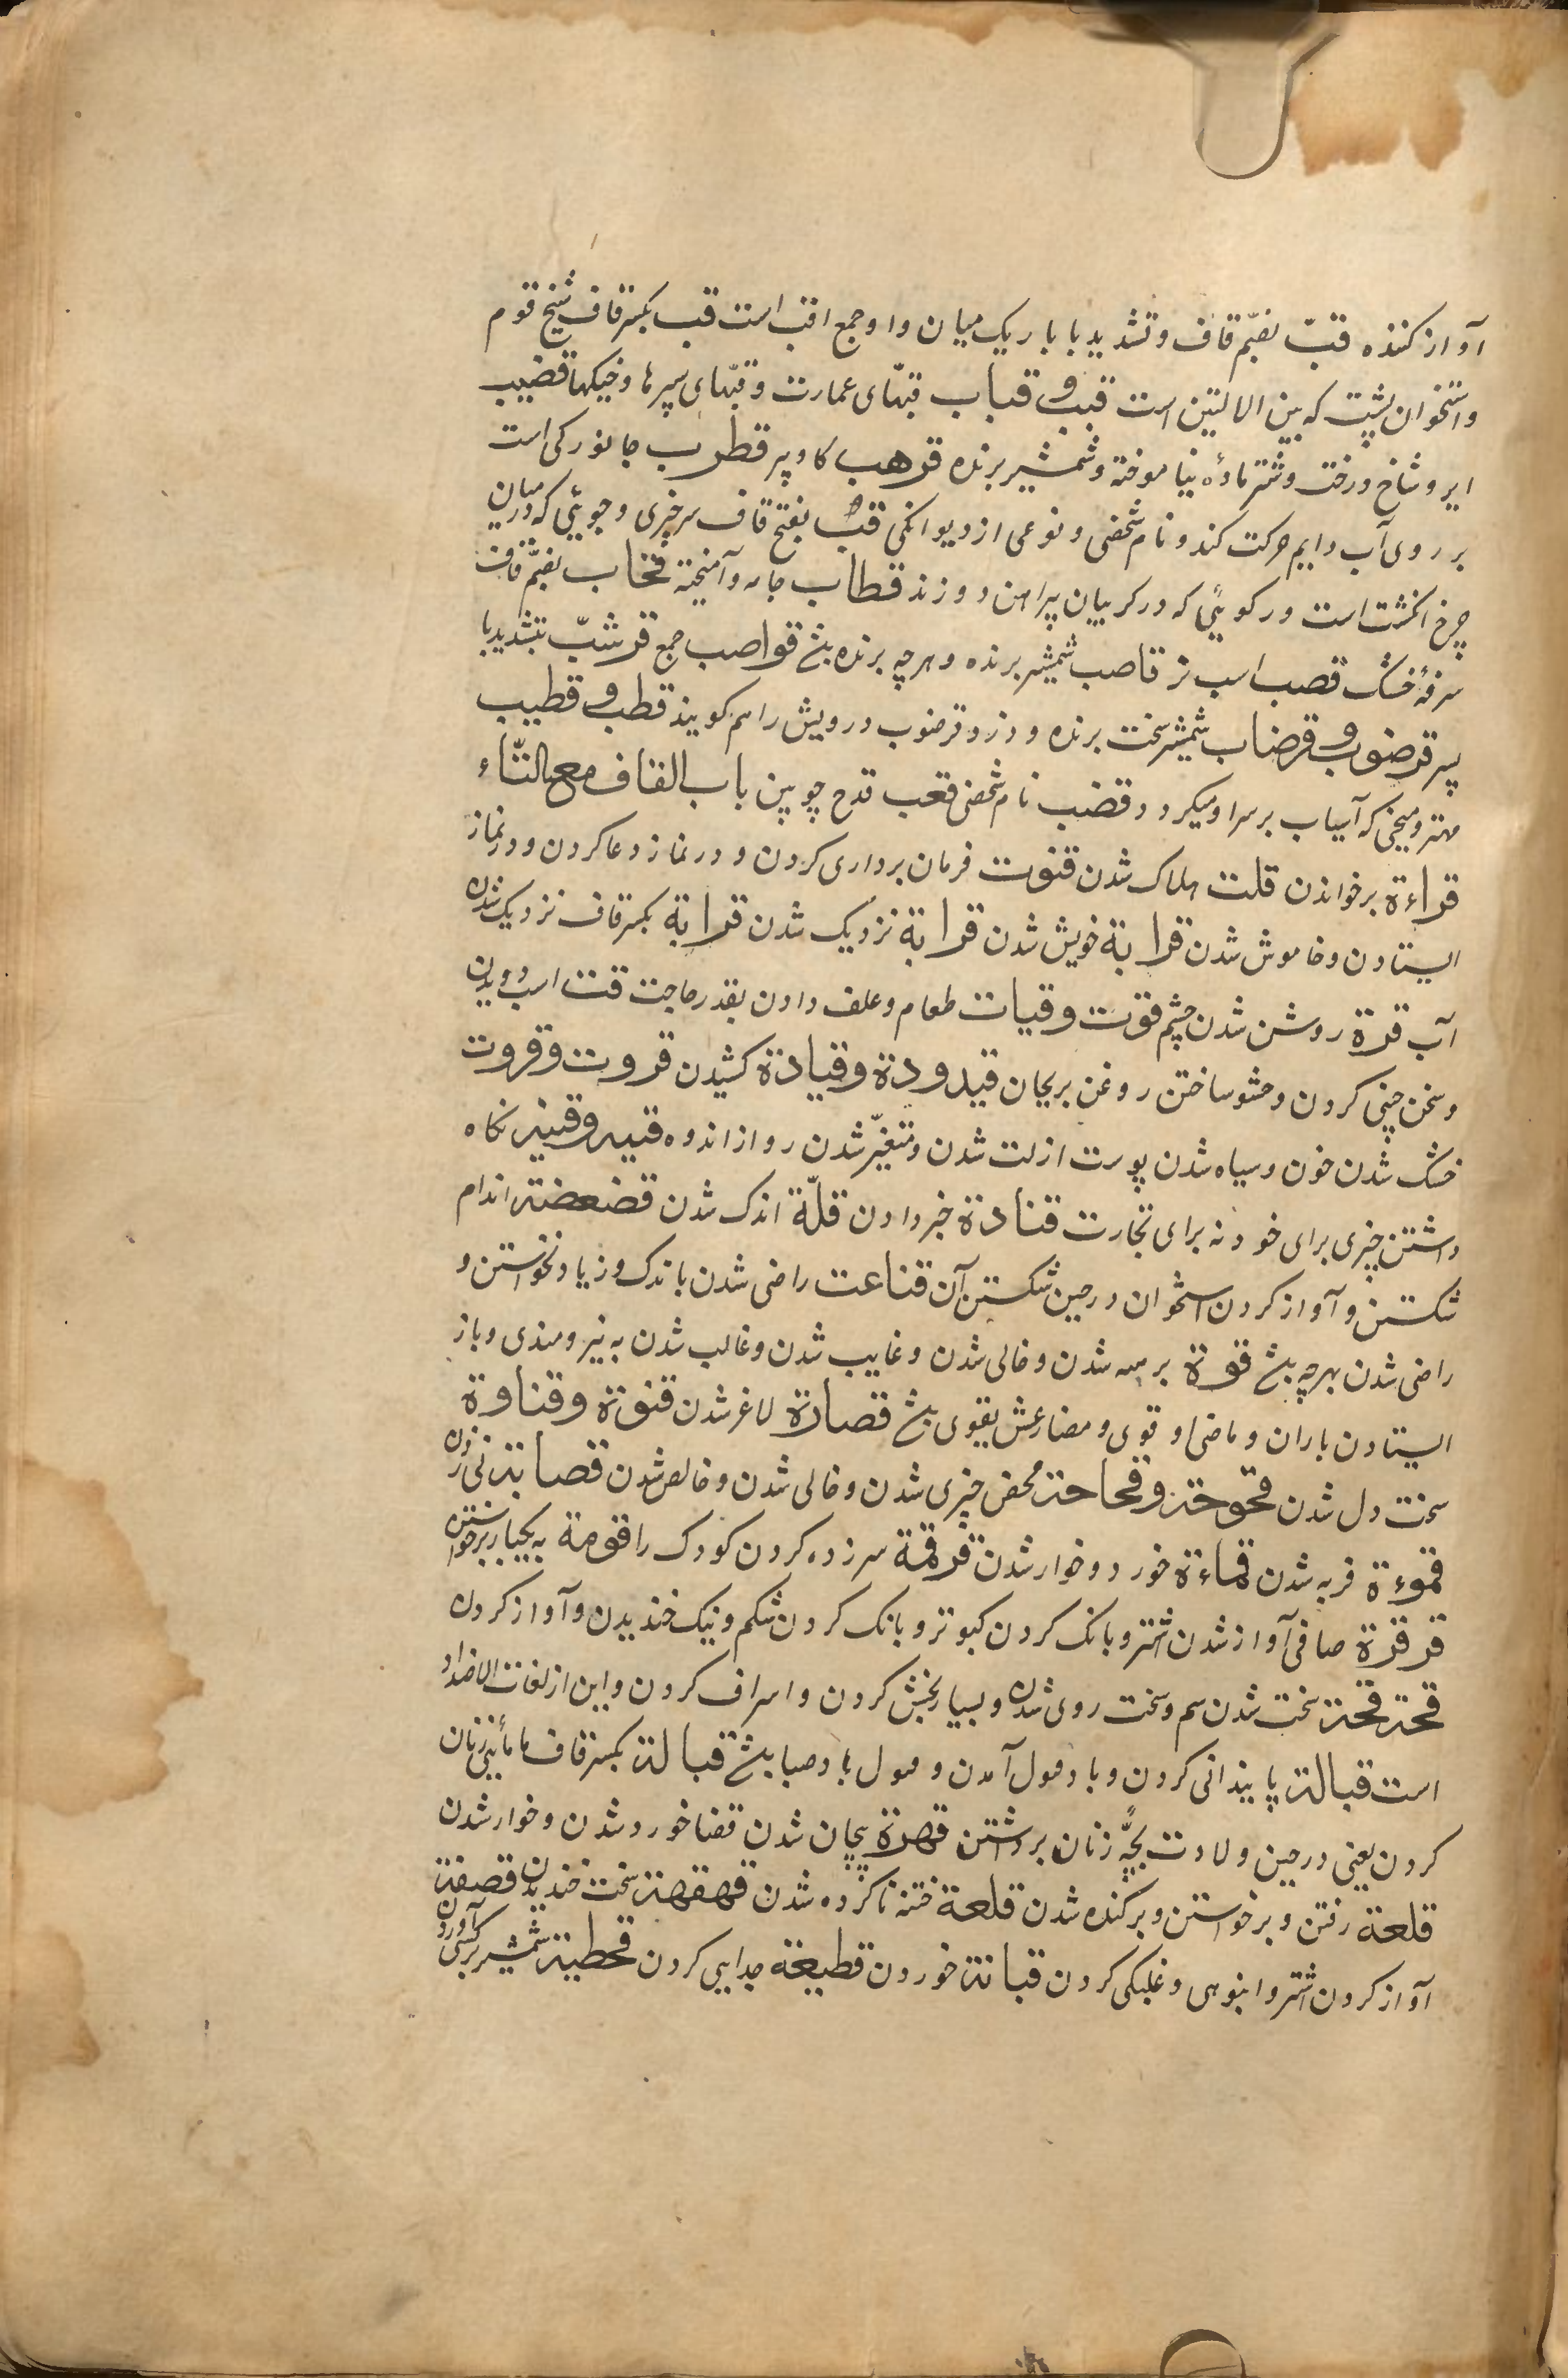 آواز کننده قبّ بضمّ قاف و تشدید با باریک میان و او جمع اقب است قب بکسر قاف شیخ قوم
و استخوان پشت که بین الالیتین است قبب و قباب قبّهای عمارت و قبّهای سپرها و خیکها قضیب
ایر و شاخ درخت و شتر مادهٔ نیاموخته و شمشیر برنده قرهب کاو پیر قطرب جانورکی است
بر روی آب دایم حرکت کند و نام شخصی و نوعی از دیوانکی قبّ بفتح قاف سر چیزی و چوبی که در میان
چرخ انکشت است و رکوئی که در کریبان پیراهن دوزند قطاب جامه و آمیخته قحاب بضمّ قاف
سرفهٔ خشک قصب اسب نر قاصب شمشیر برنده و هرچه برنده بشد قواصب جمع قرشبّ بتشدید با
پیر قرضوب و قرضاب شمشیر سخت برنده و دزد و قرضوب درویش را هم کویند قطب و قطیب
مهتر و میخی که آسیاب بر سر او میکردد قضب نام شخصی قعب قدح چوبین باب القاف مع التّاء
قراءة برخواندن قلت هلاک شدن قنوت فرمان برداری کردن و در نماز دعا کردن و در نماز
ایستادن و خاموش شدن قرابة خویش شدن قرابة نزدیک شدن قرابة بکسر قاف نزدیک شدن
آب قرة روشن شدن چشم قوت و قیات طعام و علف دادن بقدر حاجت قت اسب دویدن
و سخن چینی کردن و خشو ساختن روغن بریحان قیدودة و قیادة کشیدن قروت و قروت
خشک شدن خون و سیاه شدن پوست از لت شدن و متغیّر شدن رو از اندوه قنیه و قنیه نکاه
داشتن چیزی برای خود نه برای تجارت قنادة خبر دادن قلّة اندک شدن قضعضة اندام
شکستن و آواز کردن استخوان در حین شکستن آن قناعت راضی شدن باندک و زیاد نخواستن و
راضی شدن بهرچه بشد قوة برمه شدن و خالی شدن و غایب شدن و غالب شدن به نیرومندی و باز
ایستادن باران و ماضی او قوی و مضارعش یقوی بشد قصارة لاغر شدن قنوة و قناوة
سخت دل شدن قحوحة و قحاحة محض چیزی شدن و خالی شدن و خالص شدن قصابة نی زدن
قموءة فربه شدن قماءة خورد و خوار شدن قرقمة سرزده کردن کودک را قومة به یکبار برخواستن
قرقرة صافی آواز شدن اشتر و بانک کردن کبوتر و بانک کردن شکم و نیک خندیدن و آواز کردن
قحة قحة سخت شدن سم و سخت روی شدن و بسیار بخشش کردن و اسراف کردن و این از لغات الاضداد
است قبالة پایندانی کردن و باد قبول آمدن و قبول باد صبا بشد قبالة بکسر قاف مامائینی زنان
کردن یعنی در حین ولادت بچّهٔ زنان برداشتن قهرة پیچان شدن قضا خورد شدن و خوار شدن
قلعة رفتن و برخواستن و برکنده شدن قلعة ختنه ناکرده شدن قهقهة سخت خندیدن قصفة
آواز کردن اشتر و انبوهی و غلبکی کردن قبانة خوردن قطیعة جدایی کردن قحطبة شمشیر بر کسی آوردن